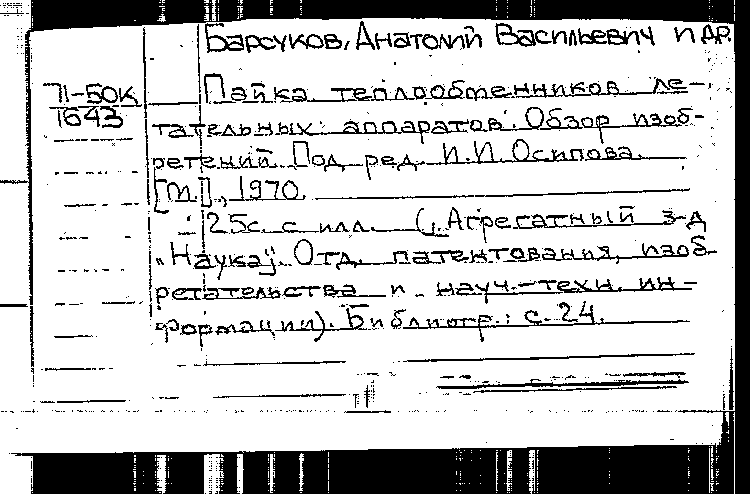 Барсуков, Анатолий Васильевич и др.
71-50к
1643
Пайка теплообменников ле-
тательных аппаратов. Обзор изоб-
ретений. Под ред. И.И. Осипова.
[М.], 1970.
25с. с илл. (Агрегатный з-д
„Наука". Отд. патентования, изоб-
ретательства и науч.-техн. ин-
формации). Библиогр.: с. 24.